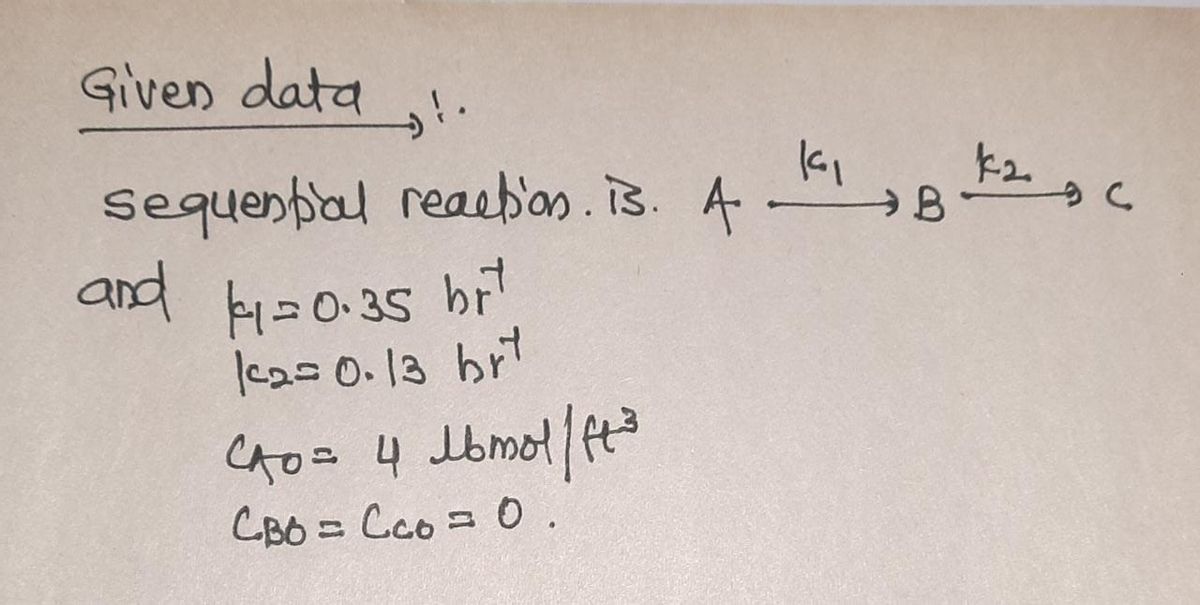 Given data :.
sequential reaction. is. A —k1→ B —k2→ C
and k1 = 0.35 hr⁻¹
k2 = 0.13 hr⁻¹
CA0 = 4 lbmol/ft³
CB0 = CC0 = 0.